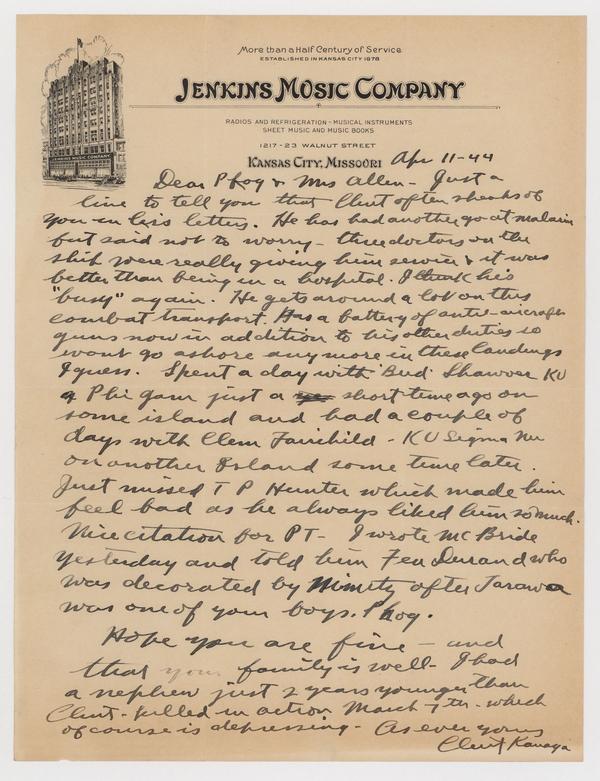 More than a Half Century of Service
ESTABLISHED IN KANSAS CITY 1878
JENKINS MUSIC COMPANY
RADIOS AND REFRIGERATION - MUSICAL INSTRUMENTS
SHEET MUSIC AND MUSIC BOOKS
1217-23 WALNUT STREET
KANSAS CITY, MISSOURI Apr 11-44
JENKINS MUSIC COMPANY
Dear Phog & Mrs Allen - Just a
line to tell you that Clint often speaks of
you in his letters. He has had another go at malaria
but said not to worry - three doctors on the
ship were really giving him service & it was
better than being in a hospital. I think he's
"busy" again. He gets around a lot on this
combat transport. Has a battery of anti-aircraft
guns now in addition to his other duties so
wont go ashore any more in these landings
I guess. Spent a day with "Bud" Shawver KU
& Phi Gam just a short time ago on
some island and had a couple of
days with Clem Fairchild - KU Sigma Nu
on another Island some time later.
Just missed T P Hunter which made him
feel bad as he always liked him so much.
Nice citation for PT - I wrote McBride
yesterday and told him Fen Durand who
was decorated by Nimitz after Tarawa
was one of your boys. Phog.
Hope you are fine - and
that your family is well - I had
a nephew just 2 years younger than
Clint - killed in action March 7th - which
of course is depressing - As ever yours
Clint Kanaga